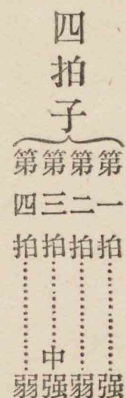 四拍子
第一拍………强
第二拍………弱
第三拍……中强
第四拍………弱